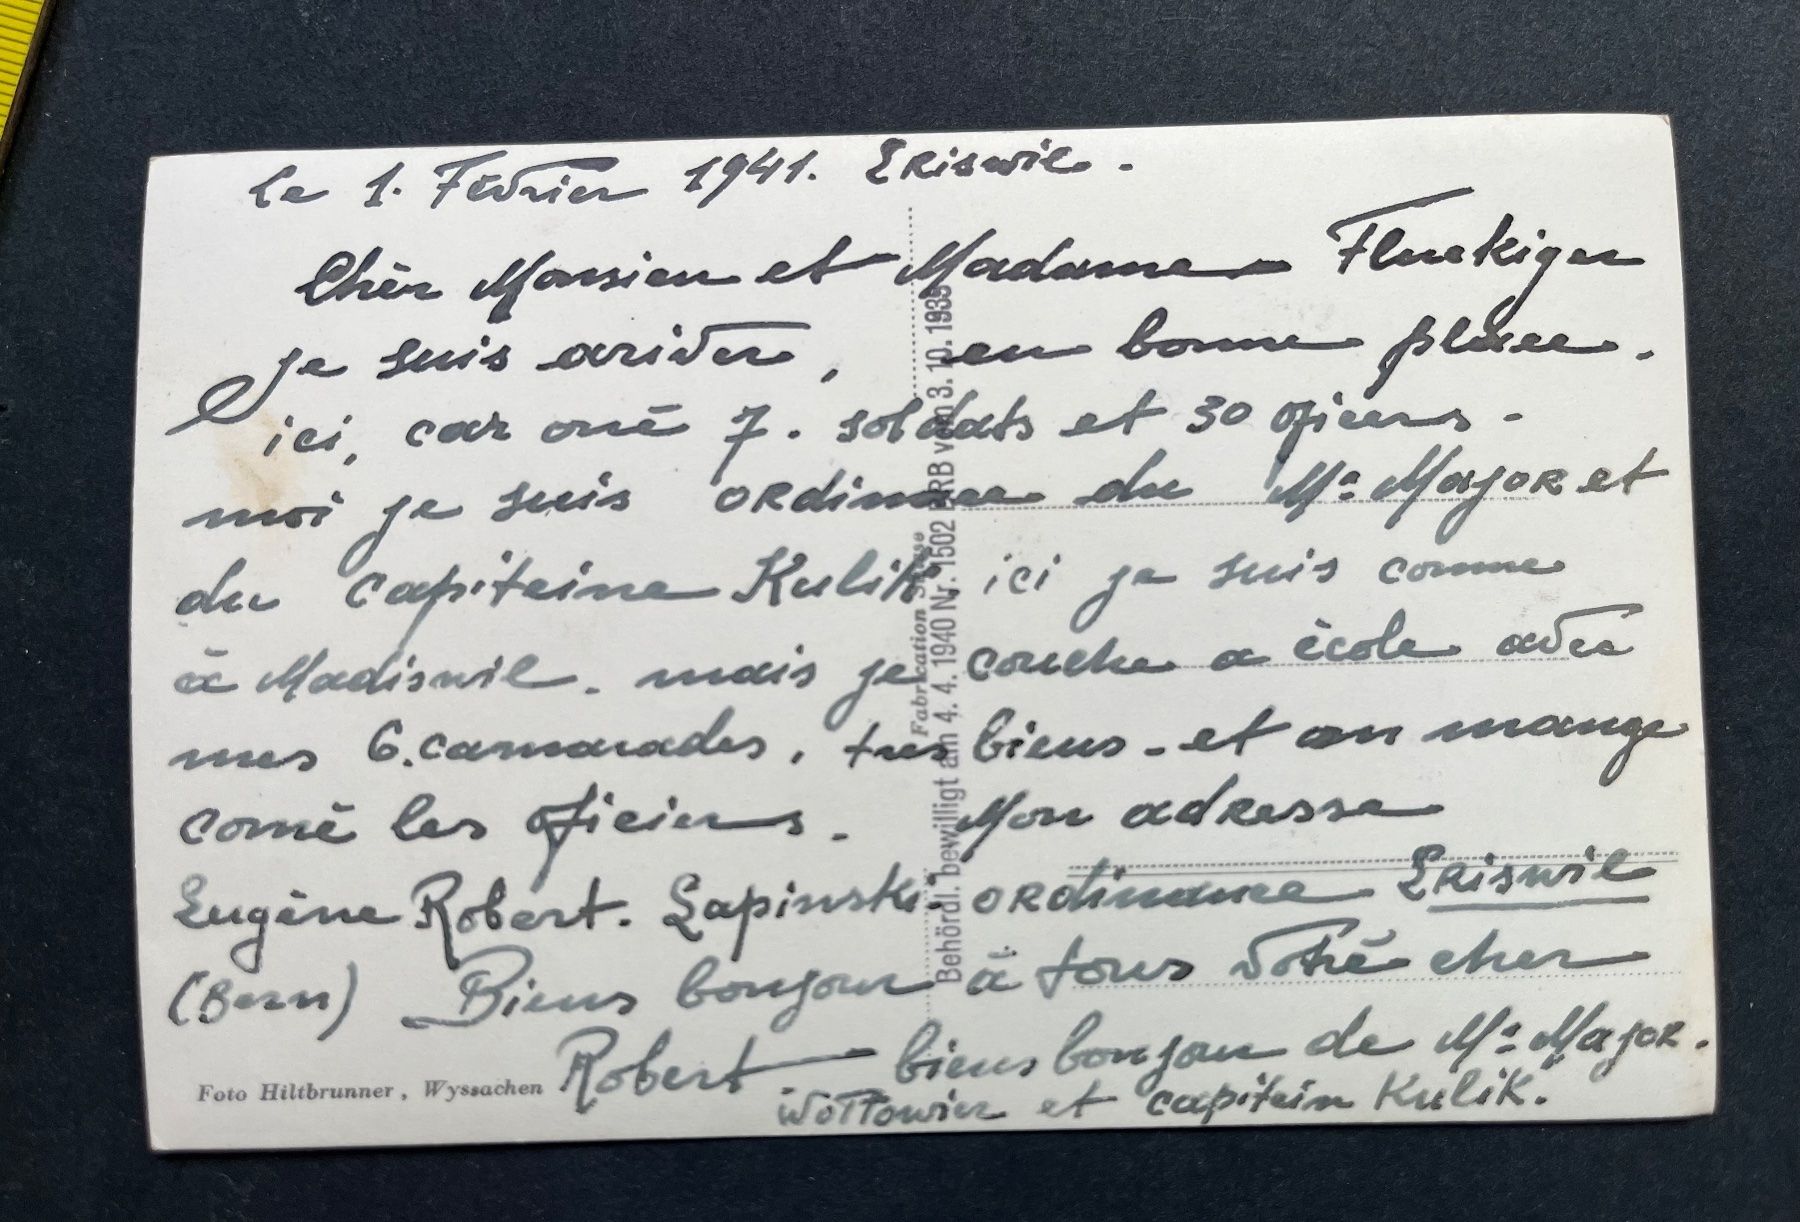 le 1. Février 1941. Eriswil.
Chèr Monsieu et Madame Fluekiger
je suis ariver, en bonne place.
ici, car onè 7. soldats et 30 oficiers.
moi je suis ordinance du Mr Major et
du capiteine Kulik, ici je suis comme
à Madiswil. mais je couche a école avec
mes 6. camarades, tres biens - et on mange
comè les oficiers. Mon adresse
Eugène Robert. Lapinski. ordinance Eriswil
(Bern) Biens bonjour à tous vôtrè cher
Robert biens bonjour de Mr Major.
et capitein Kulik.
Foto Hiltbrunner, Wyssachen
Fabrication Suisse
Behördl. bewilligt am 4. 4. 1940 Nr. 1502 BRB vom 3. 10. 1939